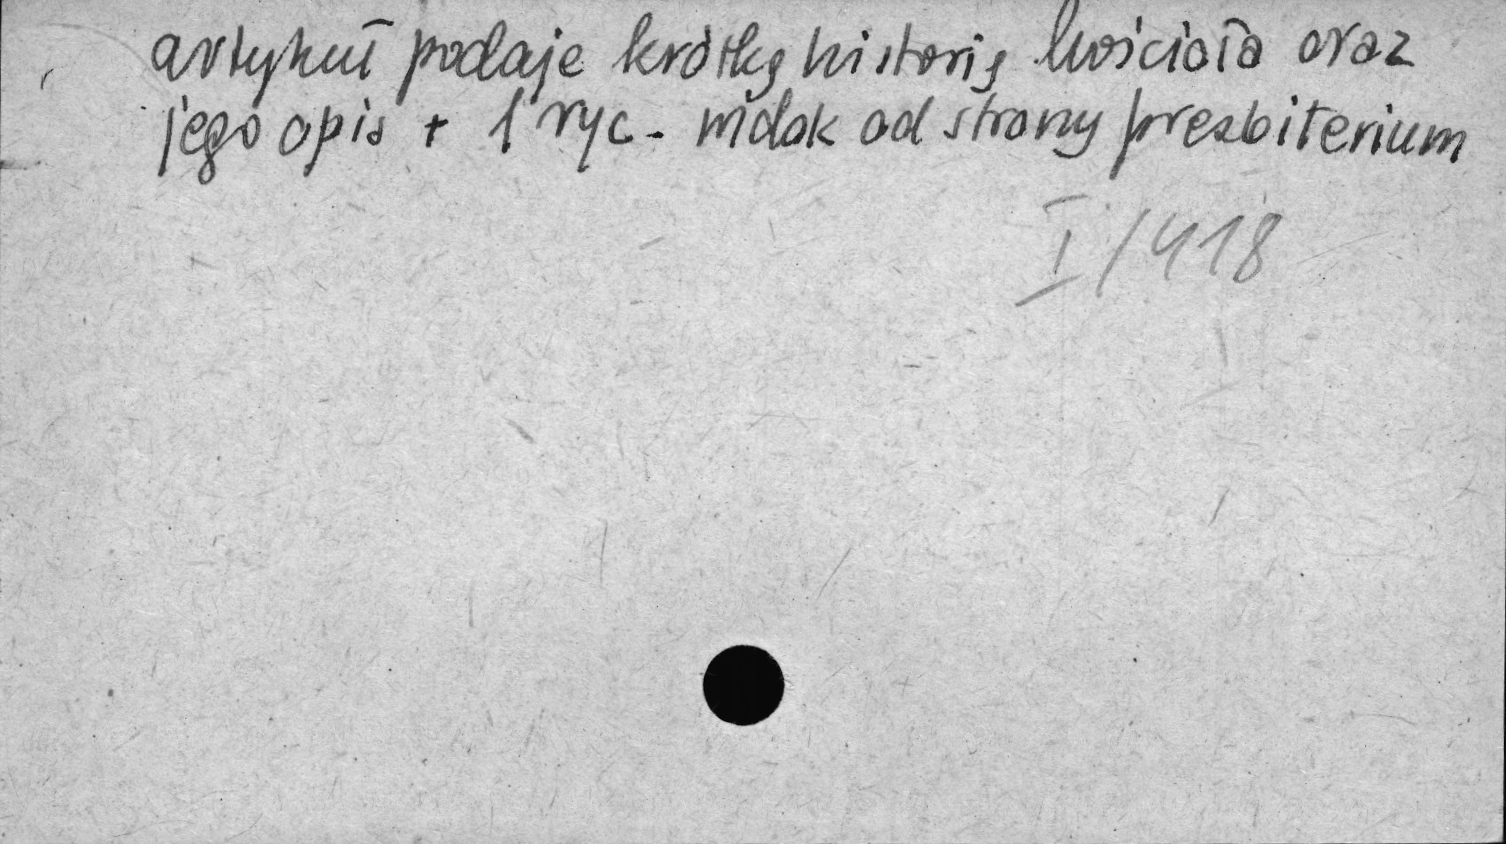 artykuł podaje krótką historię kościoła oraz
jego opis + 1 ryc - widok od strony prezbiterium
I/418